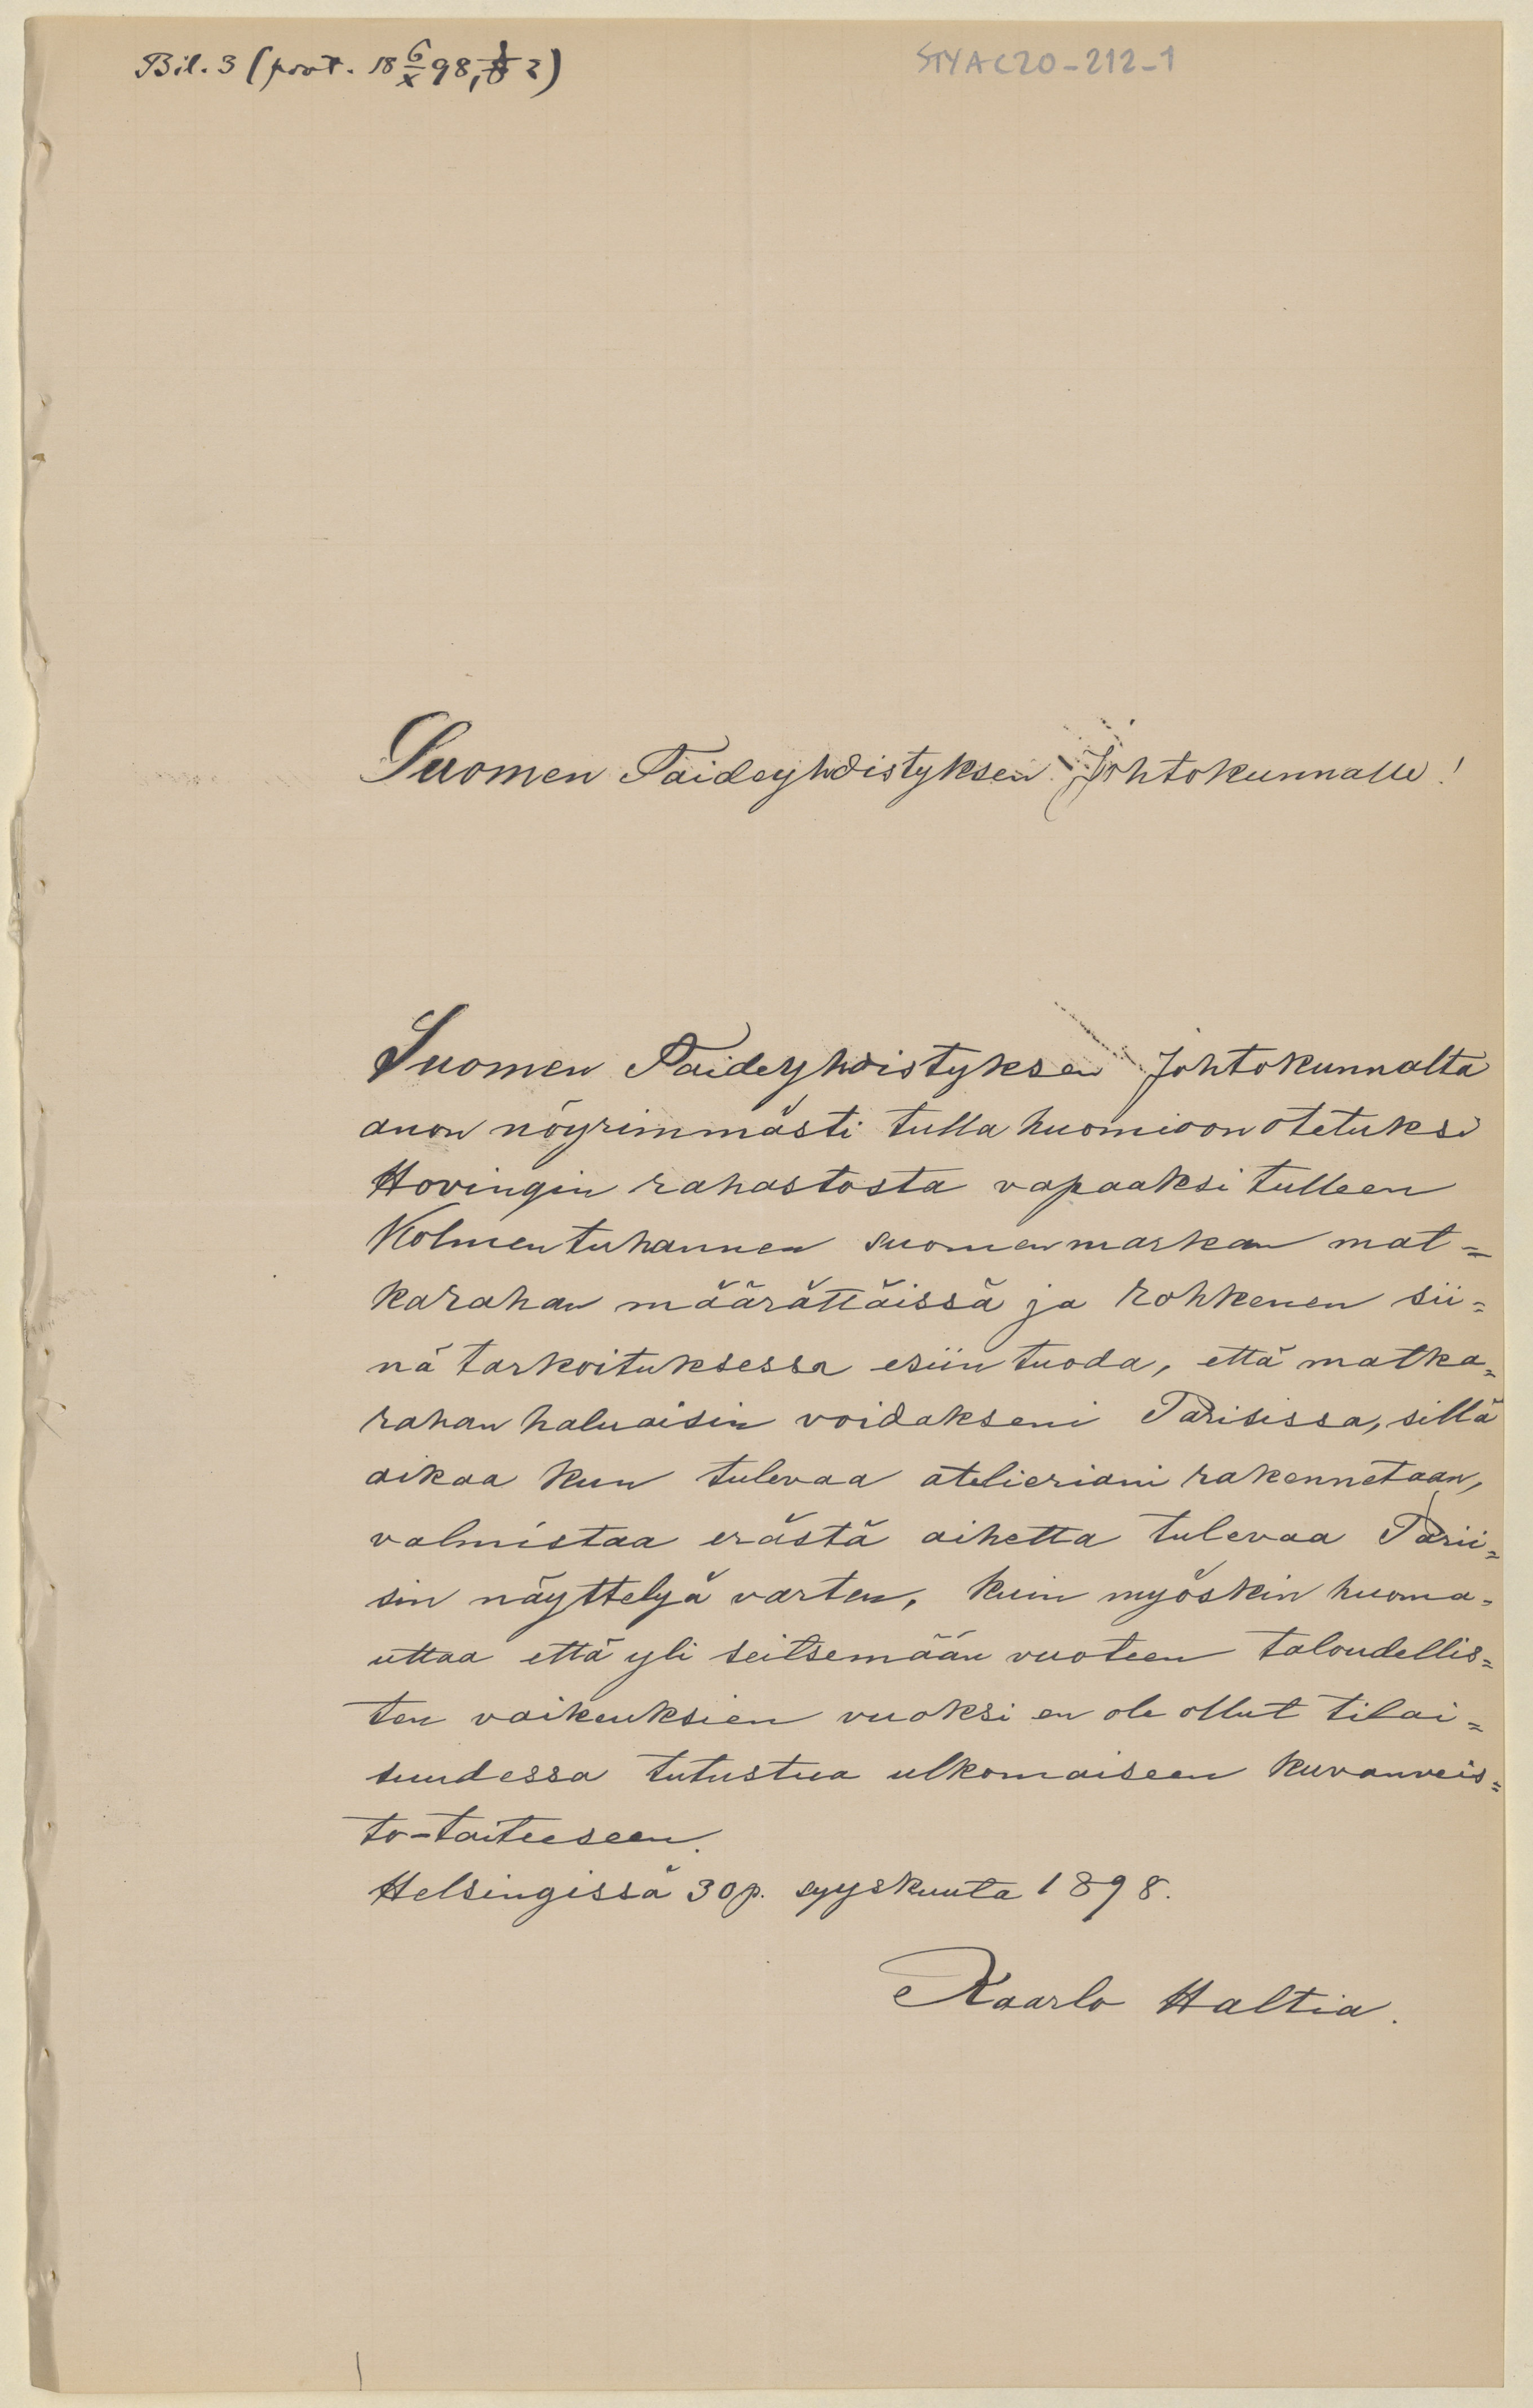 Bil. 3 (prot. 18 6/X 98, § 2)
STYA C20-212-1
Suomen Taideyhdistyksen Johtokunnalle!
Suomen Taideyhdistyksen Johtokunnalta
anon nöyrimmästi tulla huomioon otetuksi
Hovingin rahastosta vapaaksi tulleen
Kolmentuhannen suomenmarkan mat=
karahan määrättäissä ja rohkenen sii=
nä tarkoituksessa esiin tuoda, että matka=
rahan haluaisin voidakseni Parisissa, sillä
aikaa kun tulevaa atelieriani rakennetaan,
valmistaa erästä aihetta tulevaa Parii=
sin näyttelyä varten, kuin myöskin huoma=
uttaa että yli seitsemään vuoteen taloudellis=
ten vaikeuksien vuoksi en ole ollut tilai=
suudessa tutustua ulkomaiseen kuvanveis=
to-taiteeseen.
Helsingissä 30 p. syyskuuta 1898.
Kaarlo Haltia.